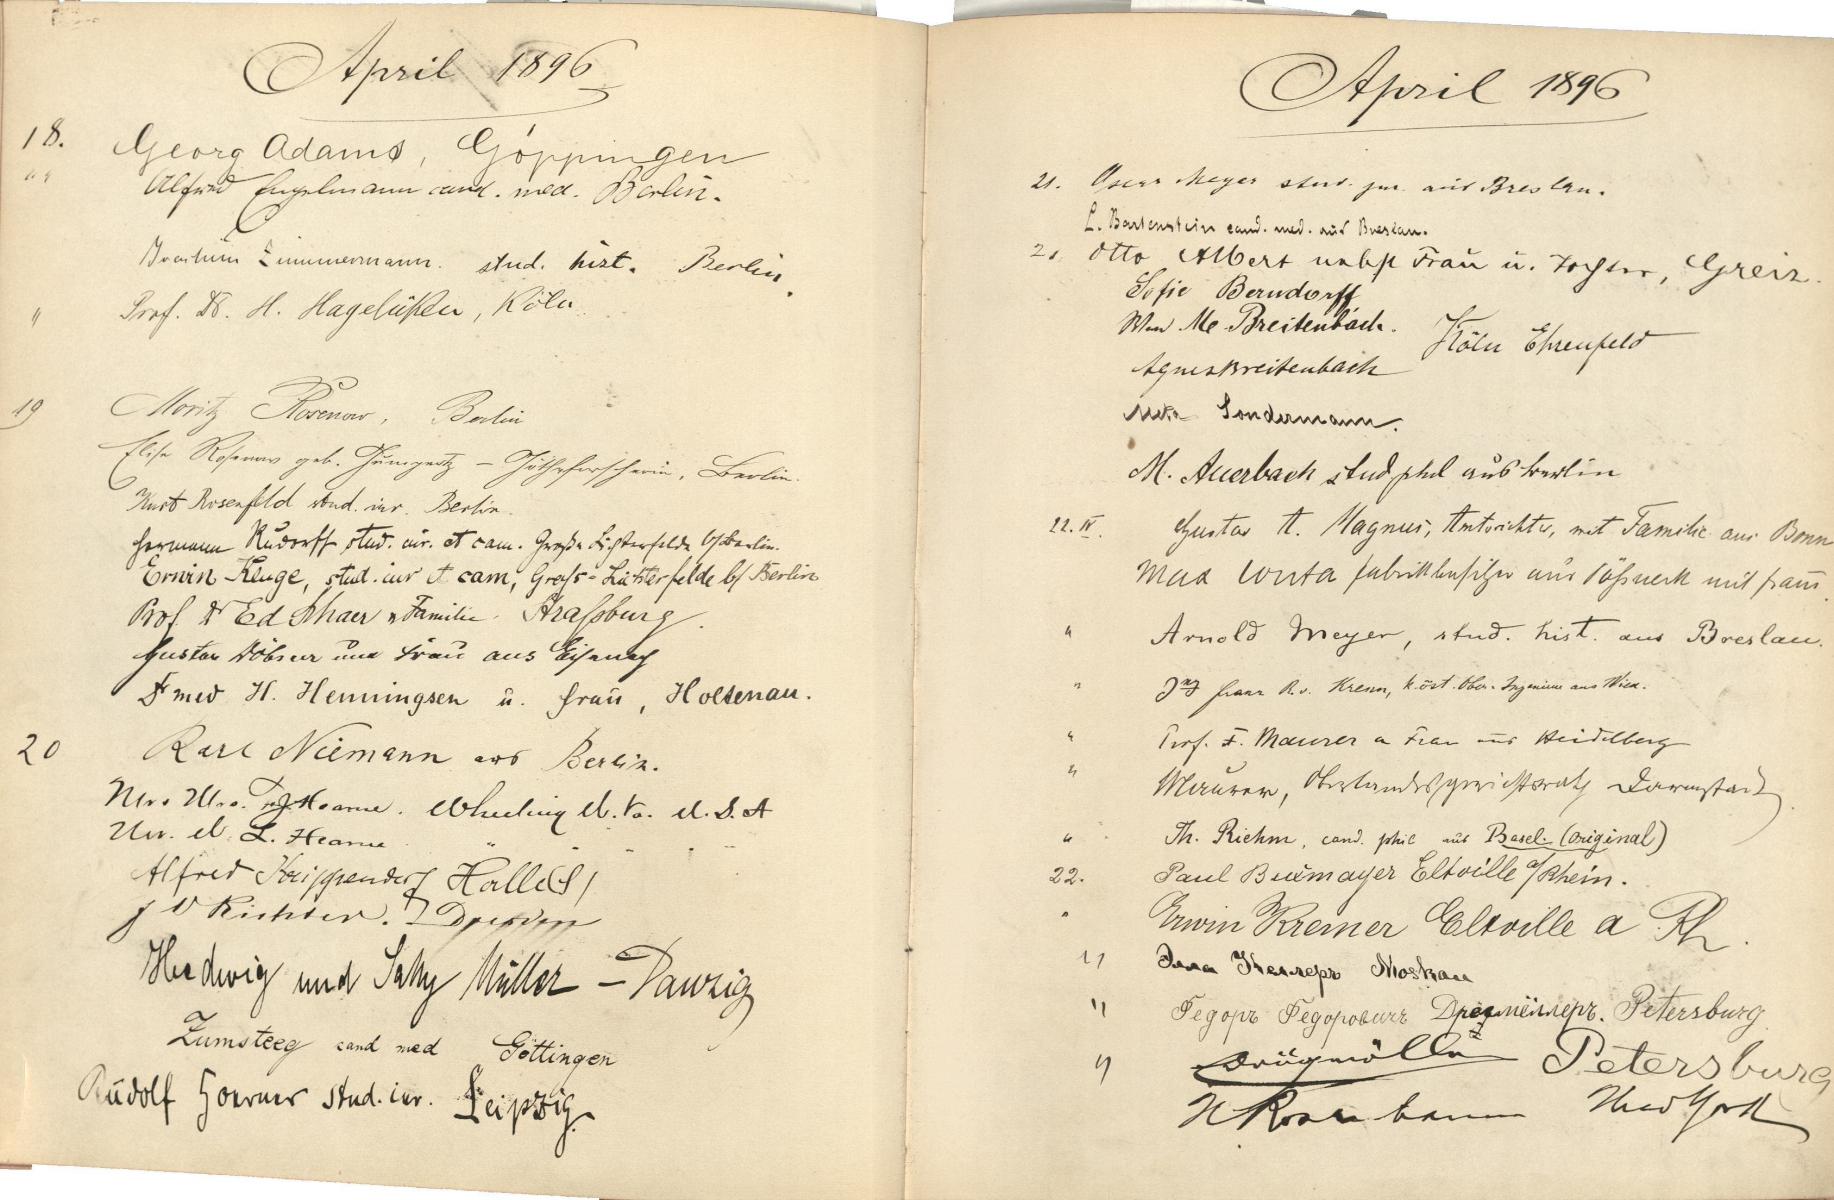 April 1896
18. Georg Adams, Göppingen
" Alfred Engelmann cand. med. Berlin.
Zimmermann. stud. hist. Berlin.
" Prof. Dr. H. Hagelüken, Köln
19 Moritz Rosenow, Berlin
Elise Rosenow geb. Gumpertz – Berlin.
Kurt Rosenfeld stud. iur. Berlin.
Hermann Rudorff stud. iur. et cam. Groß-Lichterfelde b/Berlin.
Erwin Kluge, stud. iur et cam, Groß-Lichterfelde b/ Berlin
Prof Dr Ed Schaer u Familie. Straßburg.
Gustav Döbner und Frau aus Eisenach
Dr med H. Henningsen u. Frau, Holtenau.
20 Karl Niemann aus Berlin.
Hearne. Wheeling W. Va. U.S.A
L. Hearne " " " "
Alfred Krippendorf Halle(S)
Richter. Dresden
Hedwig und Sally Müller – Danzig
Zumsteeg cand med Göttingen
Rudolf Hoerner stud. iur. Leipzig.
April 1896
21. Oscar Meyer stud. jur. aus Breslau.
L. Bartenstein cand. med. aus Breslau.
21 Otto Albert nebst Frau u. Tochter, Greiz.
Sofie Berndorff
Breitenbach. Köln Ehrenfeld
Agnes Breitenbach
Sondermann.
M. Auerbach stud phil aus Berlin
22. IV. Gustav A. Magnus, Amtsrichter, mit Familie aus Bonn
Max Conta Fabrikbesitzer aus Pößneck mit Frau.
" Arnold Meyer, stud. hist. aus Breslau.
" Ing Franz R. v. Krenn, k. öst. Ober-Ingenieur aus Wien.
" Prof. F. Maurer u Frau aus Heidelberg
" Maurer, Oberlandesgerichtsrath Darmstadt.
" Th. Riehm, cand. phil aus Basel. (original)
22. Paul Buxmayer Eltville a/Rhein.
" Erwin Kremer Eltville a Rh.
" Келлеръ Moskau
" Федоръ Федоровичъ Petersburg
" Petersburg
Rosenbaum New York